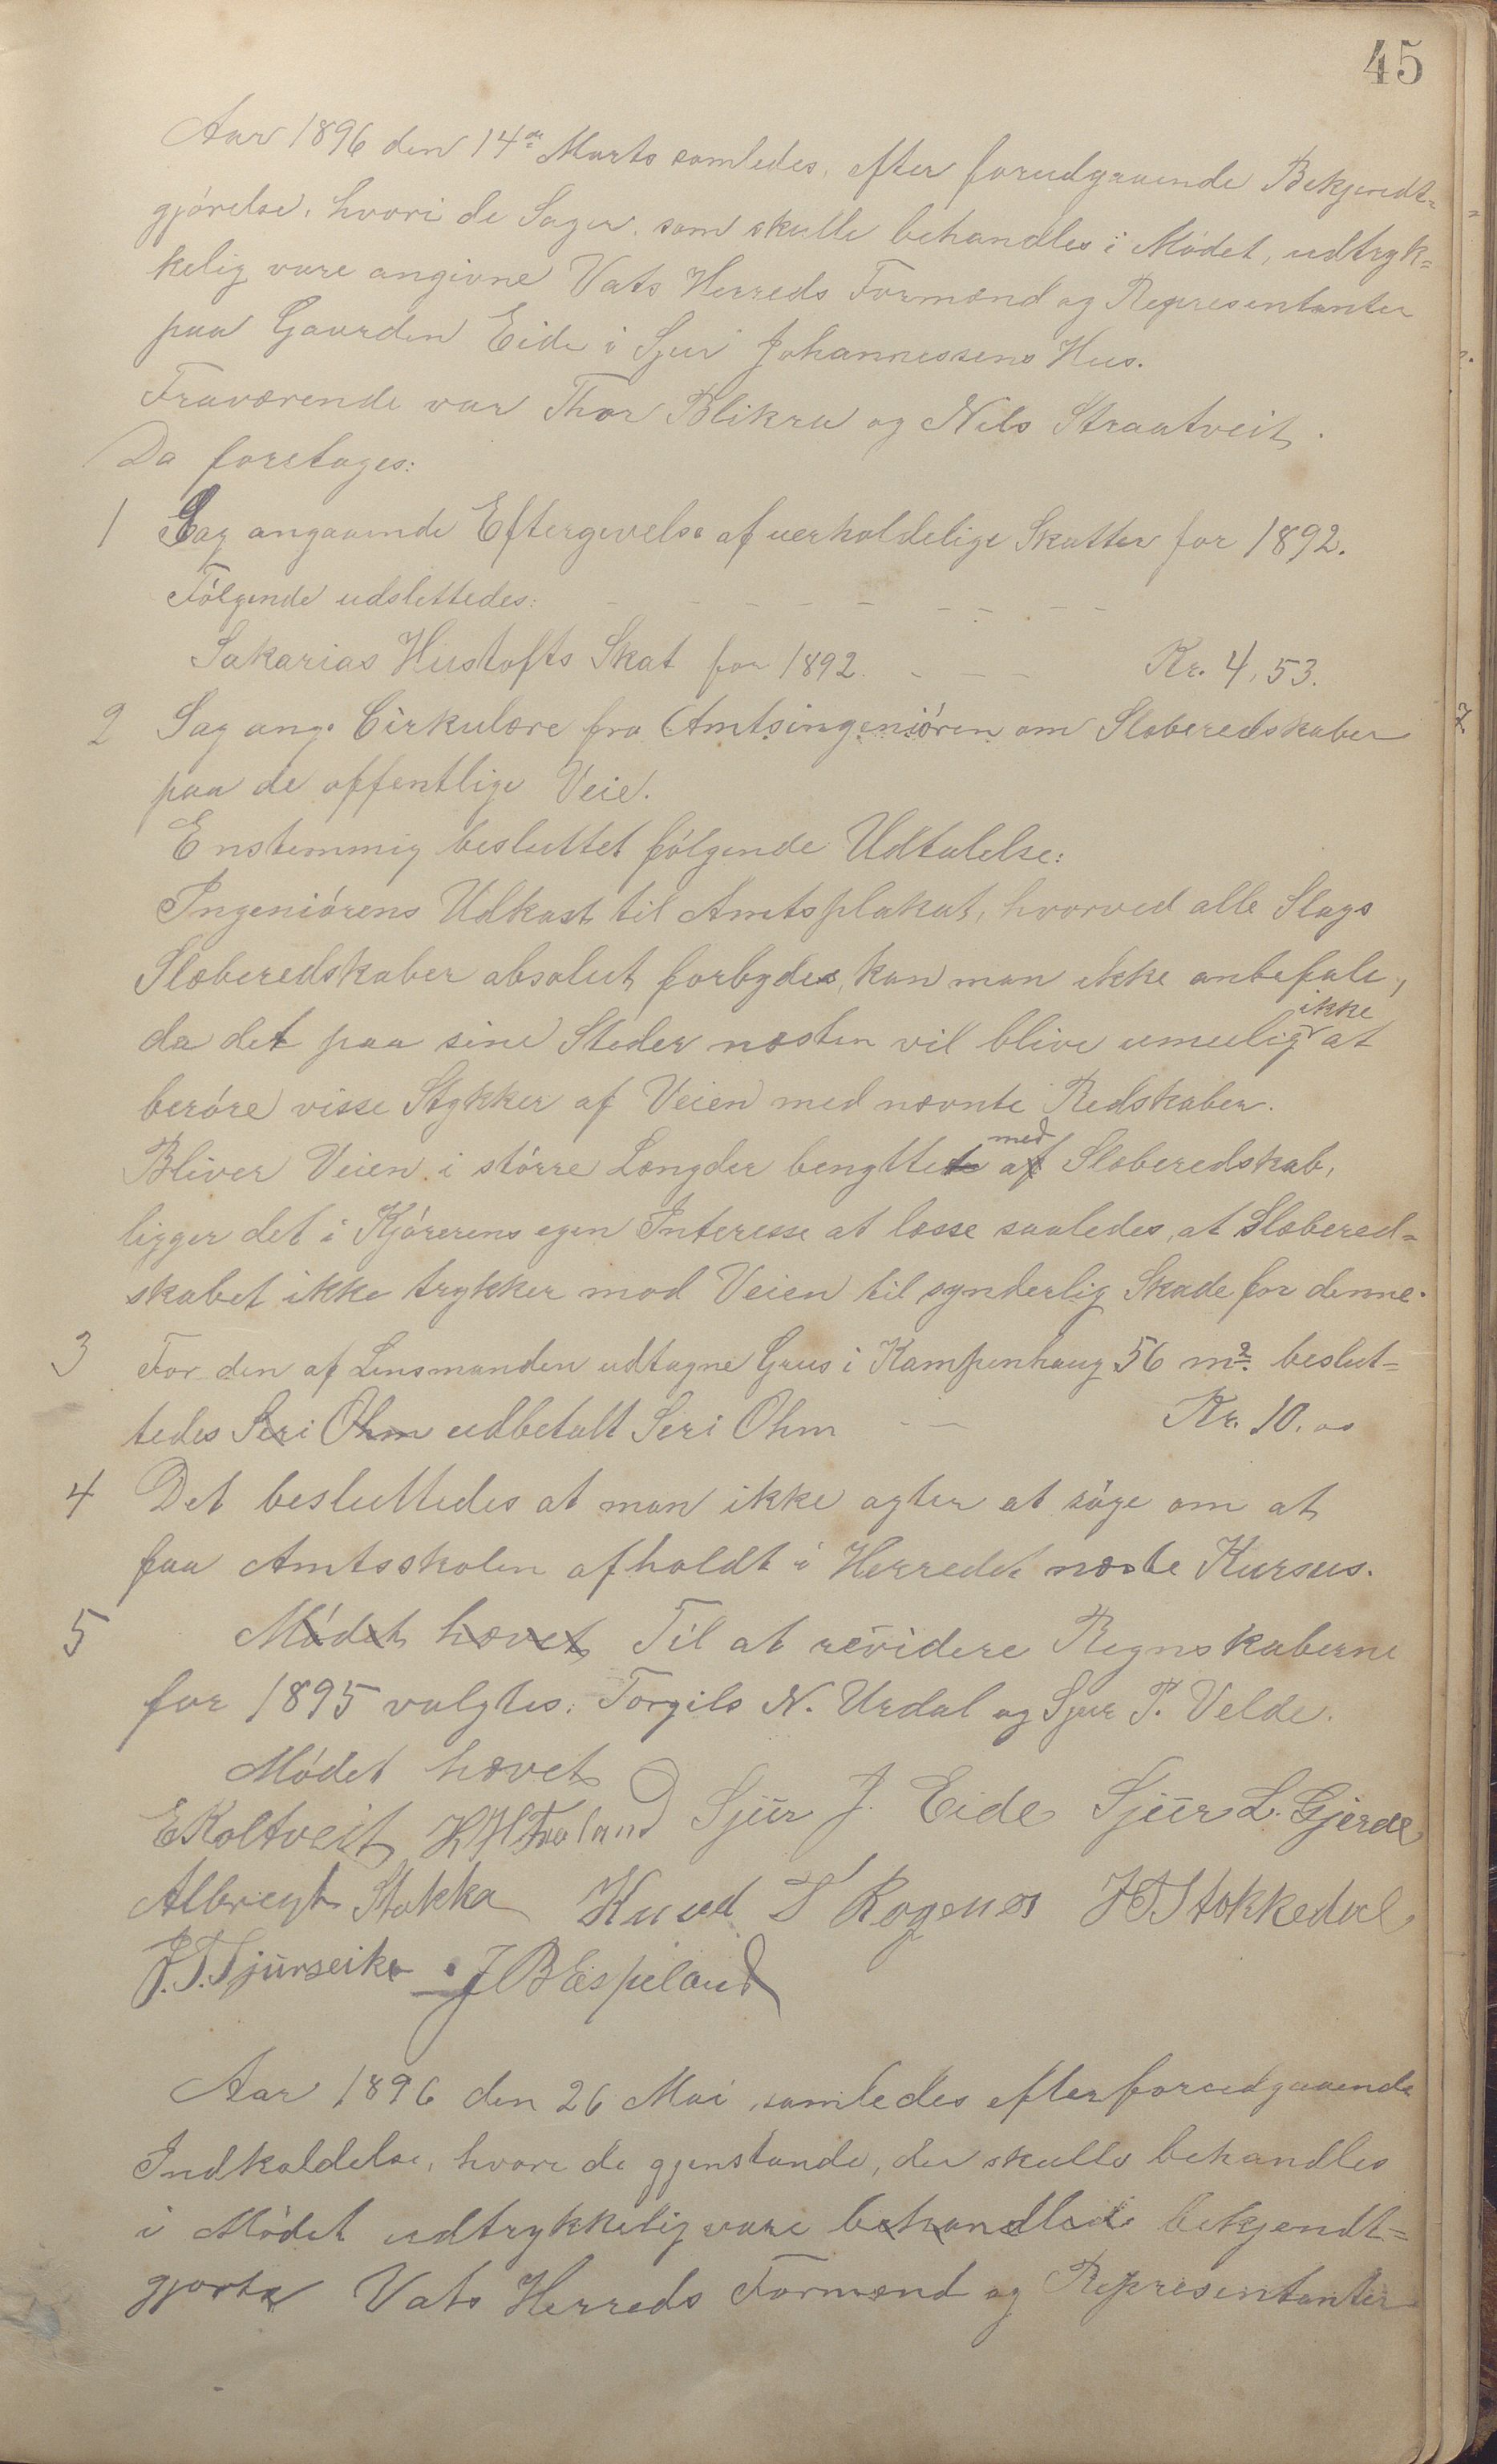 45
Aar 1896 den 14de Marts samledes, efter forudgaaende Bekjendt-
gjørelse, hvori de Sager, som skulle behandles i Mødet, udtryk-
kelig vare angivne Vats Herreds Formænd og Repræsentanter
paa Gaarden Eide i Sjur Johannessens Hus.
Fraværende var Thor Blikra og Nils Straatveit.
Da foretages:
1 Sag angaaende Eftergivelse af uerholdelige Skatter for 1892.
Følgende udslettedes: - - - - - - - -
Sakarias Hustofts Skat for 1892. - - - Kr. 4,53.
2 Sag ang. Cirkulære fra Amtsingeniøren om Slæberedskaber
paa de offentlige Veie.
Enstemmig besluttet følgende Udtalelse:
Ingeniørens Udkast til Amtsplakat, hvorved alle Slags
Slæberedskaber absolut forbydes, kan man ikke anbefale,
da det paa sine Steder næsten vil blive umulig ikke at
berøre visse Stykker af Veien med nævnte Redskaber.
Bliver Veien i større Længder benyttet af med Slæberedskab,
ligger det i Kjørerens egen Interesse at læsse saaledes, at Slæbered-
skabet ikke trykker mod Veien til synderlig Skade for denne.
3 For den af Lensmanden udtagne Grus i Kampenhaug 56 m2. beslut-
tedes Seri Ohm udbetalt Seri Ohm - - Kr. 10.00
4 Det besluttedes at man ikke agter at søge om at
faa Amtsskolen afholdt i Herredet næste Kursus.
5 Mødet hævet Til at revidere Regnskaberne
for 1895 valgtes: Torgils N. Urdal og Sjur P. Velde.
Mødet hævet
E Koltveit H H Frøland Sjur J. Eide Sjur L. Gjerde
Albregt Stakka Knud T Rogenes J T Stokkedal
J. T. Sjurseike J B Espeland
Aar 1896 den 26 Mai, samledes efter forudgaaende
Indkaldelse, hvore de gjenstande, der skulle behandles
i Mødet udtrykkelig vare behandlede bekjendt-
gjorte Vats Herreds Formænd og Repræsentanter